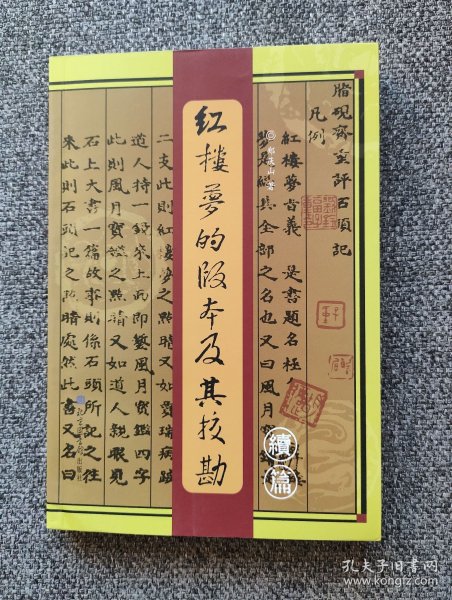 脂硯齋重評石頭記
凡例
紅樓夢旨義 是書題名極
夢是總其全部之名也又曰風月寶鑑
郑庆山 著
红楼梦的版本及其校勘
續篇
二支此則紅樓夢之點睛又如賈瑞病跛
道人持一鏡來上面即鏨風月寶鑑四字
此則風月寶鑑之點睛又如道人親眼見
石上大書一篇故事則係石頭所記之往
來此則石頭記之點睛處然此書又名曰
北京图书馆出版社
孔夫子旧书网
www.kongfz.com